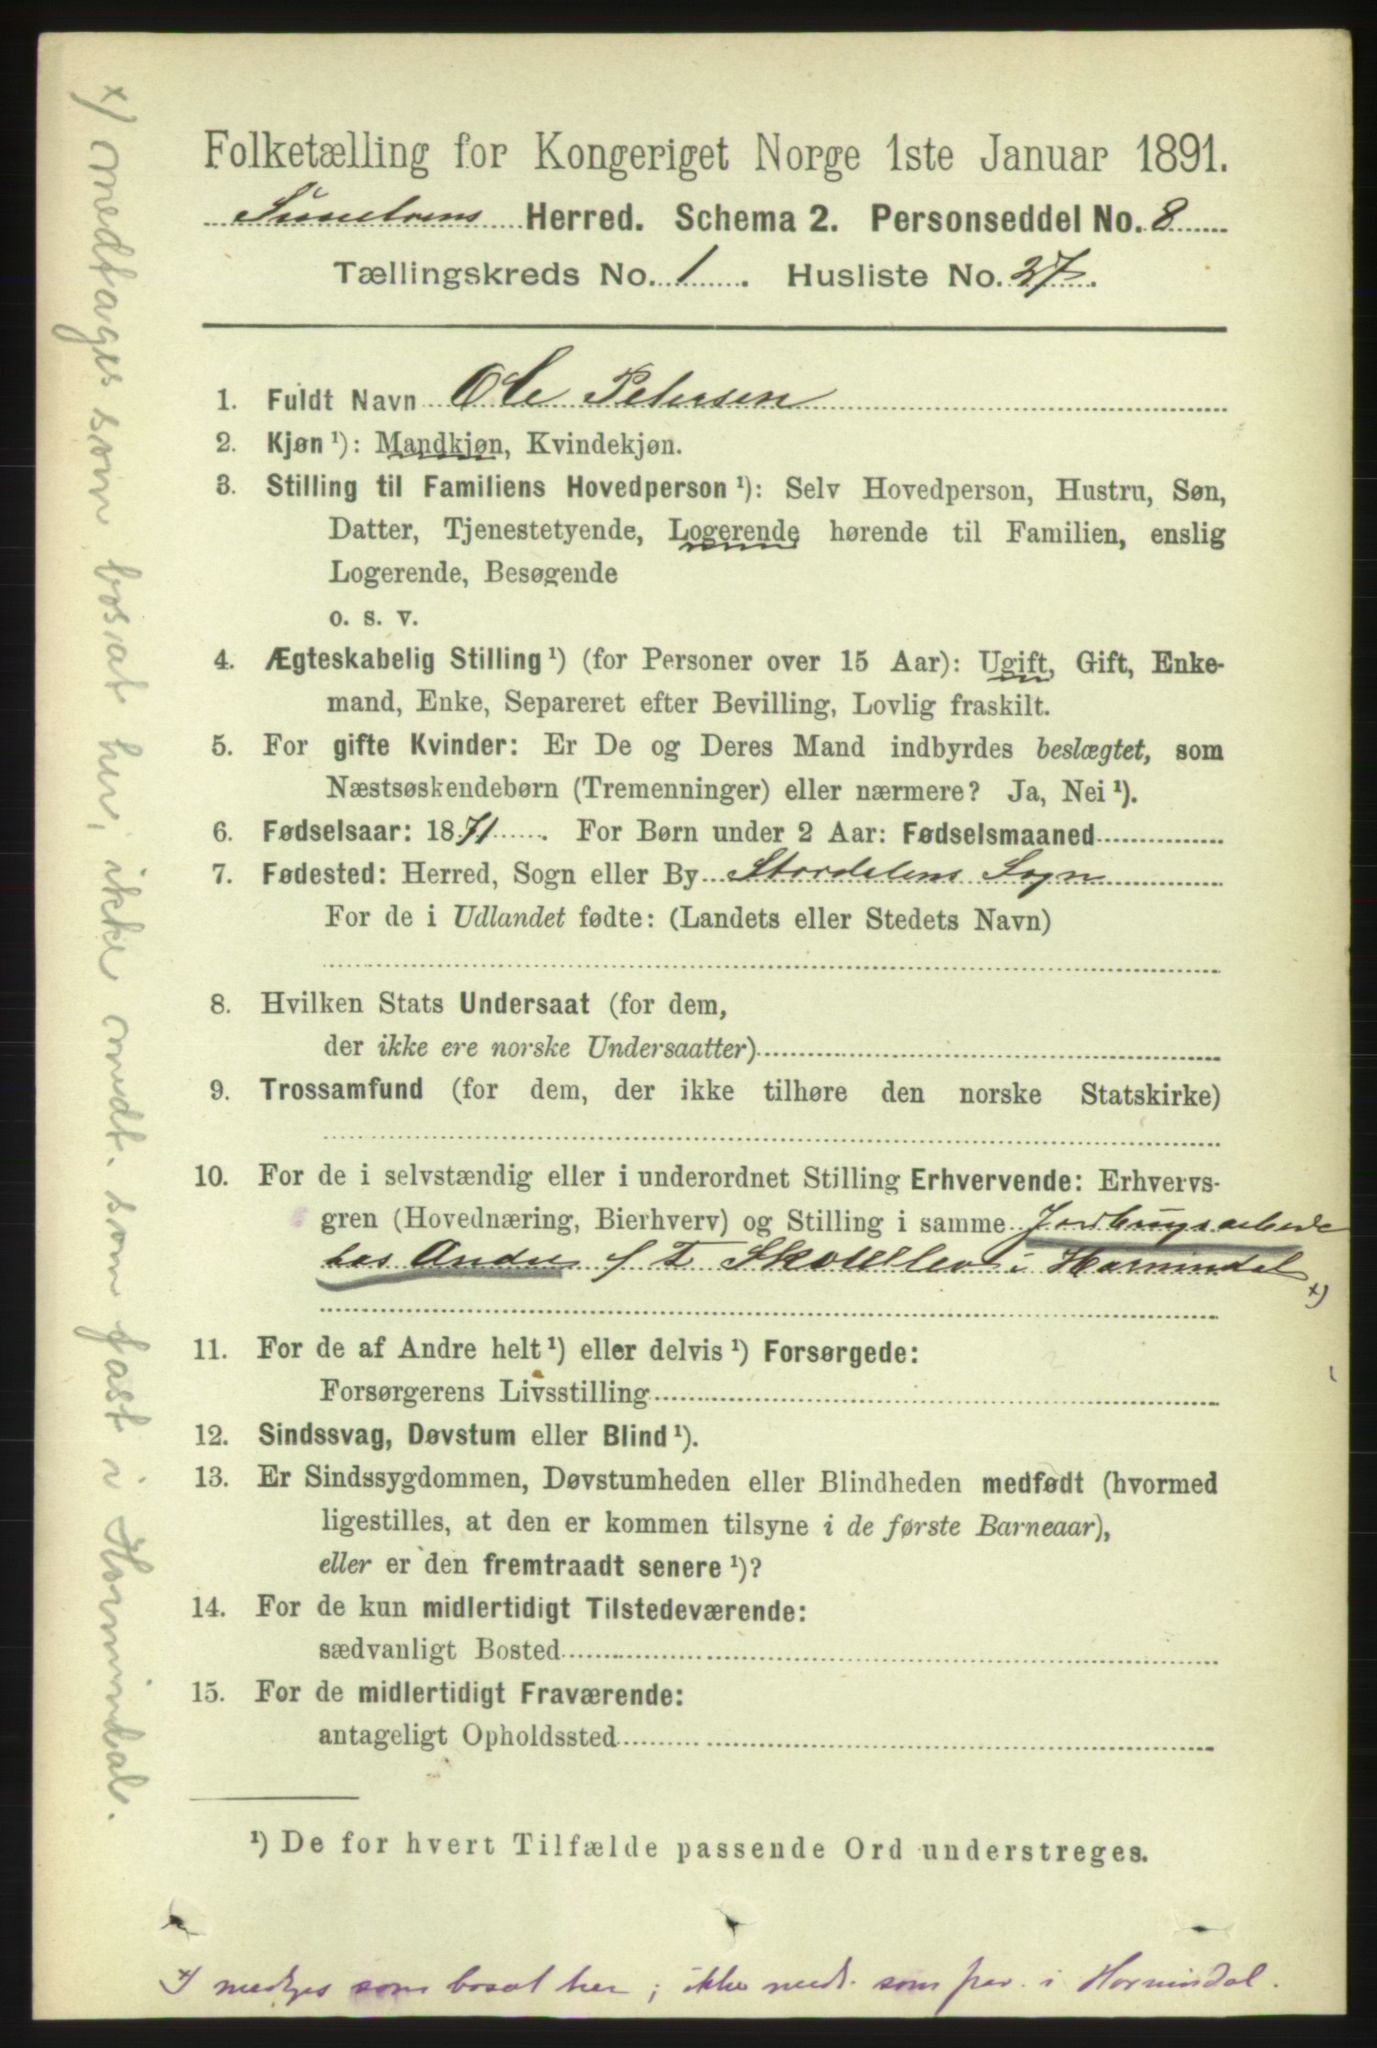 Folketælling for Kongeriget Norge 1ste Januar 1891.
Sunelvens Herred. Schema 2. Personseddel No. 8
Tællingskreds No. 1. Husliste No. 27.
1. Fuldt Navn Ole Petersen
2. Kjøn ¹): Mandkjøn, Kvindekjøn.
3. Stilling til Familiens Hovedperson ¹): Selv Hovedperson, Hustru, Søn,
Datter, Tjenestetyende, Logerende hørende til Familien, enslig
Logerende, Besøgende
o. s. v.
4. Ægteskabelig Stilling ¹) (for Personer over 15 Aar): Ugift, Gift, Enke-
mand, Enke, Separeret efter Bevilling, Lovlig fraskilt.
5. For gifte Kvinder: Er De og Deres Mand indbyrdes beslægtet, som
Næstsøskendebørn (Tremenninger) eller nærmere? Ja, Nei ¹).
6. Fødselsaar: 1871. For Børn under 2 Aar: Fødselsmaaned
7. Fødested: Herred, Sogn eller By Stordalens Sogn
For de i Udlandet fødte: (Landets eller Stedets Navn)
8. Hvilken Stats Undersaat (for dem,
der ikke ere norske Undersaatter)
9. Trossamfund (for dem, der ikke tilhøre den norske Statskirke)
10. For de i selvstændig eller i underordnet Stilling Erhvervende: Erhvervs-
gren (Hovednæring, Bierhverv) og Stilling i samme Jordbrugsarbeide
hos Andre f T i Hornindal x)
11. For de af Andre helt ¹) eller delvis ¹) Forsørgede:
Forsørgerens Livsstilling
12. Sindssvag, Døvstum eller Blind ¹).
13. Er Sindssygdommen, Døvstumheden eller Blindheden medfødt (hvormed
ligestilles, at den er kommen tilsyne i de første Barneaar),
eller er den fremtraadt senere ¹)?
14. For de kun midlertidigt Tilstedeværende:
sædvanligt Bosted
15. For de midlertidigt Fraværende:
antageligt Opholdssted
¹) De for hvert Tilfælde passende Ord understreges.
x) medtges som bosat her; ikke medt. som fav. i Hornindal.
x) medtages som bosat her, ikke medt. som fast i Hornindal.